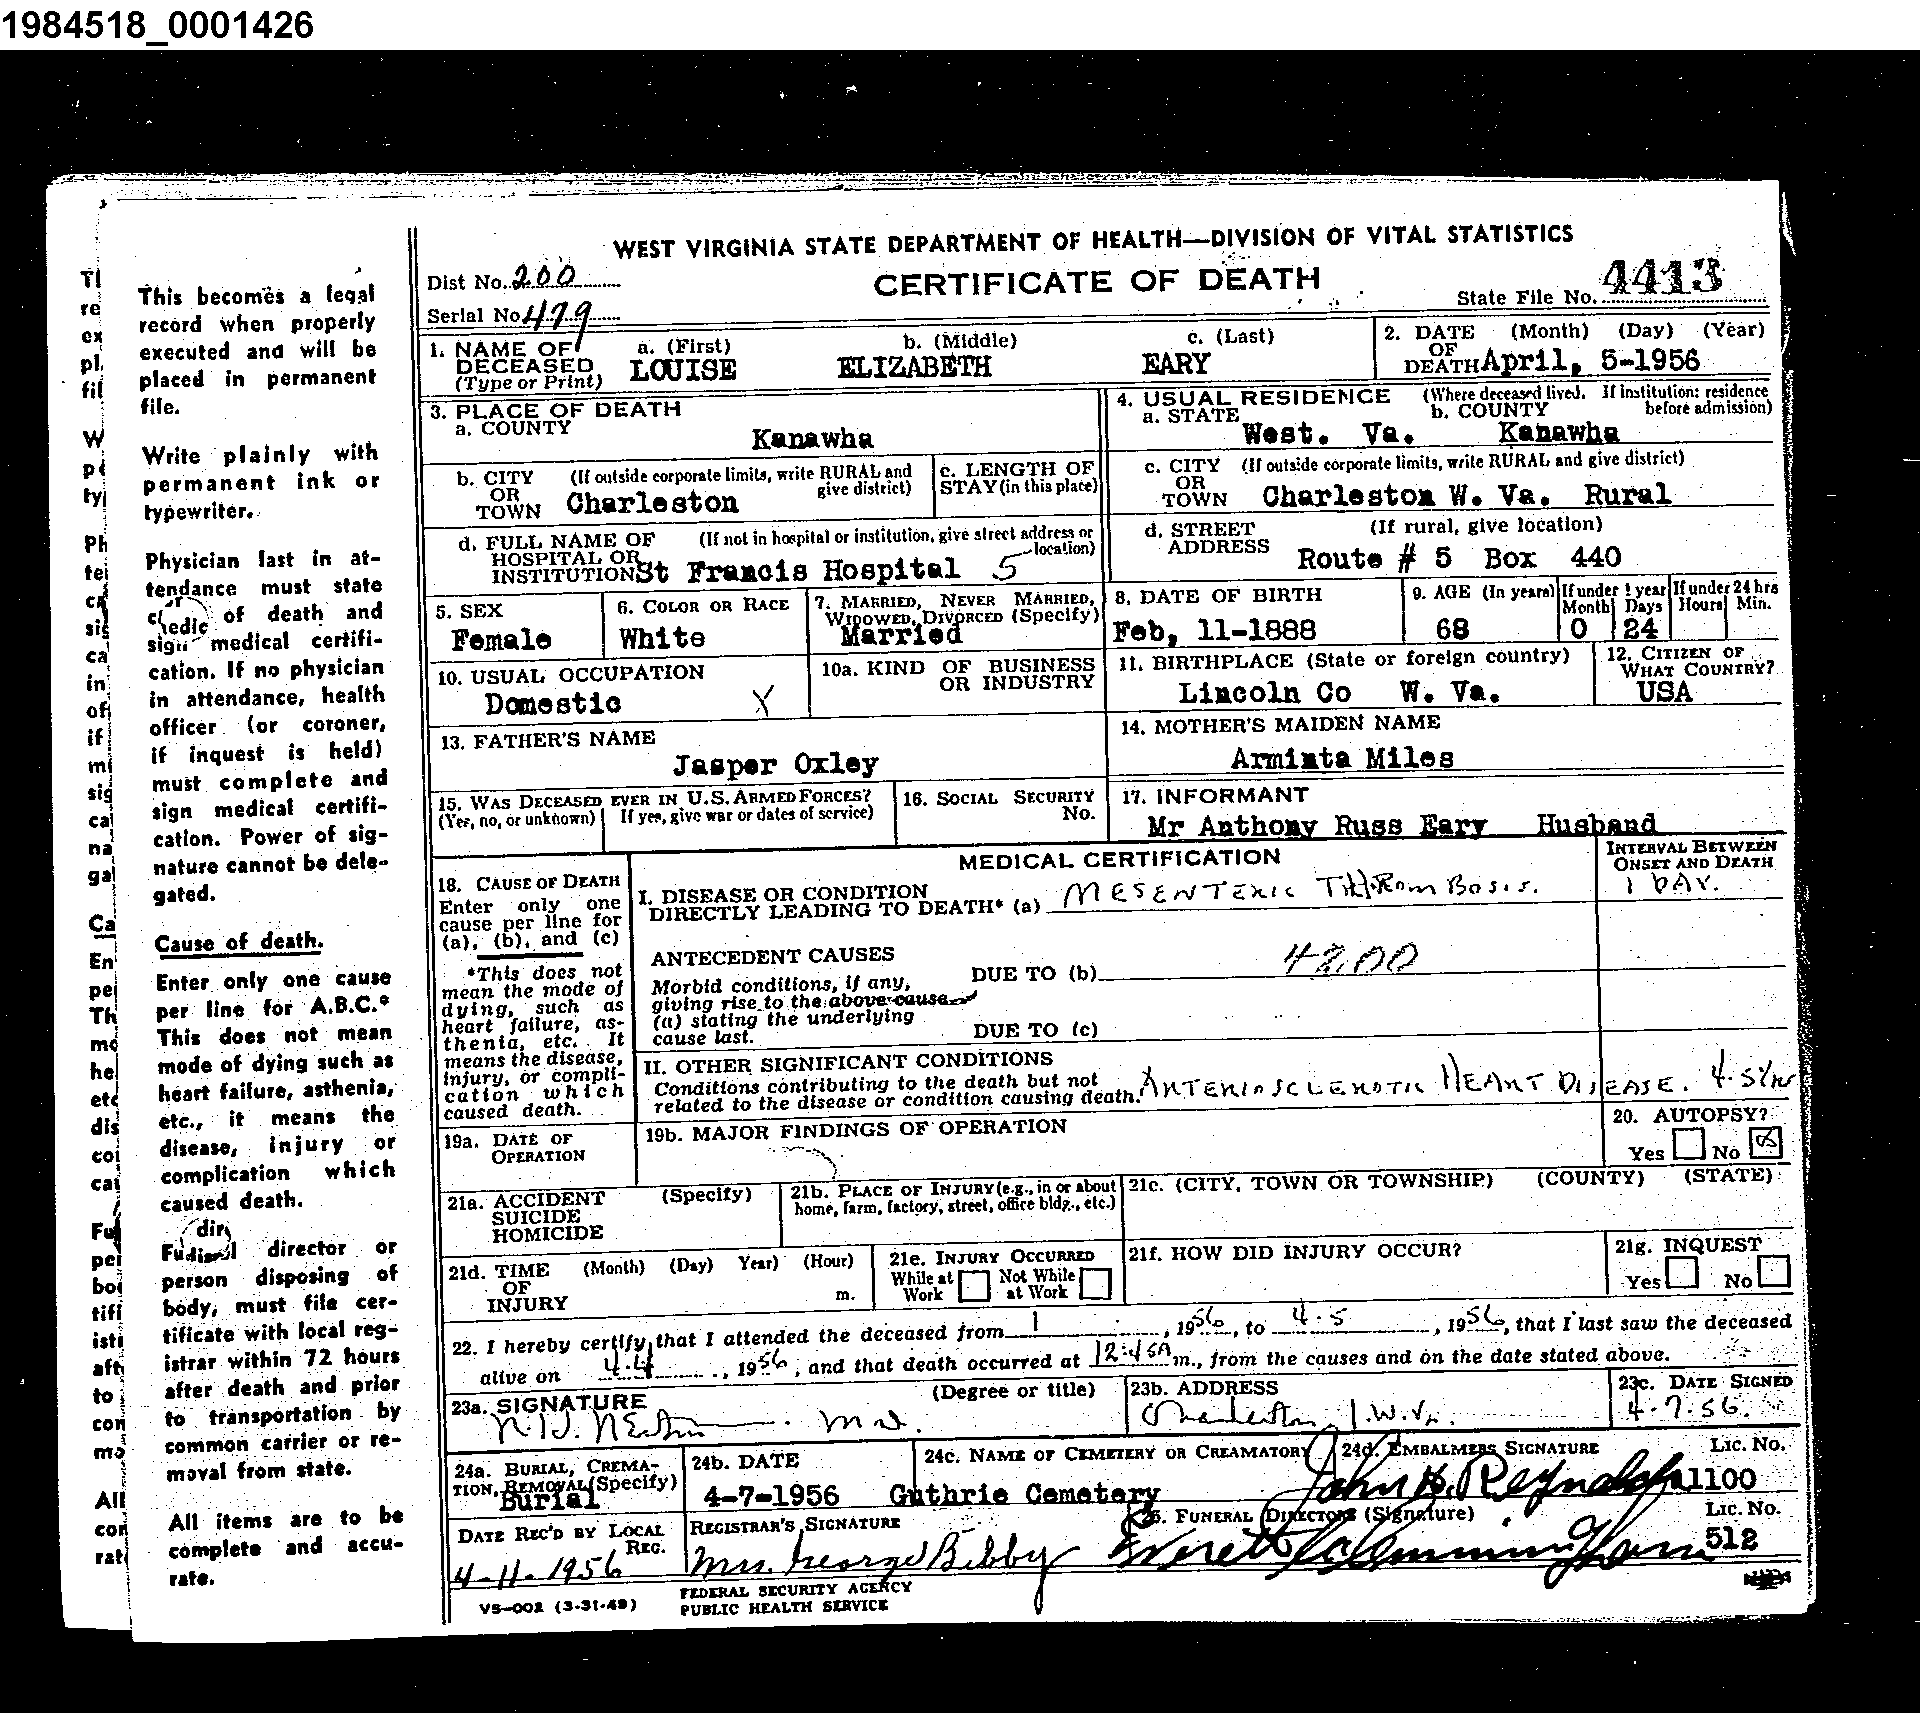 1984518_0001426
WEST VIRGINIA STATE DEPARTMENT OF HEALTH—DIVISION OF VITAL STATISTICS
CERTIFICATE OF DEATH
Dist No. 200
Serial No. 479
State File No. 4413
1. NAME OF DECEASED (Type or Print)
a. (First) LOUISE
b. (Middle) ELIZABETH
c. (Last) EARY
2. DATE OF DEATH (Month) (Day) (Year) April, 5-1956
3. PLACE OF DEATH
a. COUNTY Kanawha
b. CITY OR TOWN (If outside corporate limits, write RURAL and give district) Charleston
c. LENGTH OF STAY (in this place)
d. FULL NAME OF HOSPITAL OR INSTITUTION (If not in hospital or institution, give street address or location) St Francis Hospital 5
4. USUAL RESIDENCE (Where deceased lived. If institution: residence before admission)
a. STATE West. Va.
b. COUNTY Kanawha
c. CITY OR TOWN (If outside corporate limits, write RURAL and give district) Charleston W. Va. Rural
d. STREET ADDRESS (If rural, give location) Route # 5 Box 440
5. SEX Female
6. COLOR OR RACE White
7. MARRIED, NEVER MARRIED, WIDOWED, DIVORCED (Specify) Married
8. DATE OF BIRTH Feb, 11-1888
9. AGE (In years) 68
If under 1 year Month 0 Days 24
If under 24 hrs Hours Min.
10. USUAL OCCUPATION Domestic X
10a. KIND OF BUSINESS OR INDUSTRY
11. BIRTHPLACE (State or foreign country) Lincoln Co W. Va.
12. CITIZEN OF WHAT COUNTRY? USA
13. FATHER'S NAME Jasper Oxley
14. MOTHER'S MAIDEN NAME Arminta Miles
15. WAS DECEASED EVER IN U.S. ARMED FORCES? (Yes, no, or unknown) If yes, give war or dates of service)
16. SOCIAL SECURITY No.
17. INFORMANT Mr Anthony Russ Eary Husband
MEDICAL CERTIFICATION
INTERVAL BETWEEN ONSET AND DEATH
18. CAUSE OF DEATH
Enter only one cause per line for (a), (b), and (c)
*This does not mean the mode of dying, such as heart failure, asthenia, etc. It means the disease, injury, or complication which caused death.
I. DISEASE OR CONDITION DIRECTLY LEADING TO DEATH* (a) MESENTERIC THROMBOSIS. 1 DAY.
ANTECEDENT CAUSES
Morbid conditions, if any, giving rise to the above cause (a) stating the underlying cause last.
DUE TO (b) 4200
DUE TO (c)
II. OTHER SIGNIFICANT CONDITIONS
Conditions contributing to the death but not related to the disease or condition causing death. ARTERIOSCLEROTIC HEART DISEASE. 4-5 Yrs
19a. DATE OF OPERATION
19b. MAJOR FINDINGS OF OPERATION
20. AUTOPSY? Yes No X
21a. ACCIDENT SUICIDE HOMICIDE (Specify)
21b. PLACE OF INJURY (e.g., in or about home, farm, factory, street, office bldg., etc.)
21c. (CITY, TOWN OR TOWNSHIP) (COUNTY) (STATE)
21d. TIME OF INJURY (Month) (Day) Year) (Hour) m.
21e. INJURY OCCURRED While at Work Not While at Work
21f. HOW DID INJURY OCCUR?
21g. INQUEST Yes No
22. I hereby certify that I attended the deceased from 1, 1956, to 4-5, 1956, that I last saw the deceased
alive on 4-4, 1956, and that death occurred at 12:45A m., from the causes and on the date stated above.
23a. SIGNATURE (Degree or title) M.D.
23b. ADDRESS Charleston, W. Va.
23c. DATE SIGNED 4-7-56.
24a. BURIAL, CREMATION, REMOVAL (Specify) Burial
24b. DATE 4-7-1956
24c. NAME OF CEMETERY OR CREAMATORY Guthrie Cemetery
24d. EMBALMERS SIGNATURE John H. Reynolds Lic. No. A1100
DATE REC'D BY LOCAL REG. 4-11-1956
REGISTRAR'S SIGNATURE Mrs. George Bibby
25. FUNERAL DIRECTORS (Signature) Everett Lic. No. 512
VS-002 (3-31-49)
FEDERAL SECURITY AGENCY
PUBLIC HEALTH SERVICE
This becomes a legal
record when properly
executed and will be
placed in permanent
file.
Write plainly with
permanent ink or
typewriter.
Physician last in at-
tendance must state
of death and
sign medical certifi-
cation. If no physician
in attendance, health
officer (or coroner,
if inquest is held)
must complete and
sign medical certifi-
cation. Power of sig-
nature cannot be dele-
gated.
Cause of death.
Enter only one cause
per line for A.B.C.*
This does not mean
mode of dying such as
heart failure, asthenia,
etc., it means the
disease, injury or
complication which
caused death.
director or
person disposing of
body, must file cer-
tificate with local reg-
istrar within 72 hours
after death and prior
to transportation by
common carrier or re-
moval from state.
All items are to be
complete and accu-
rate.